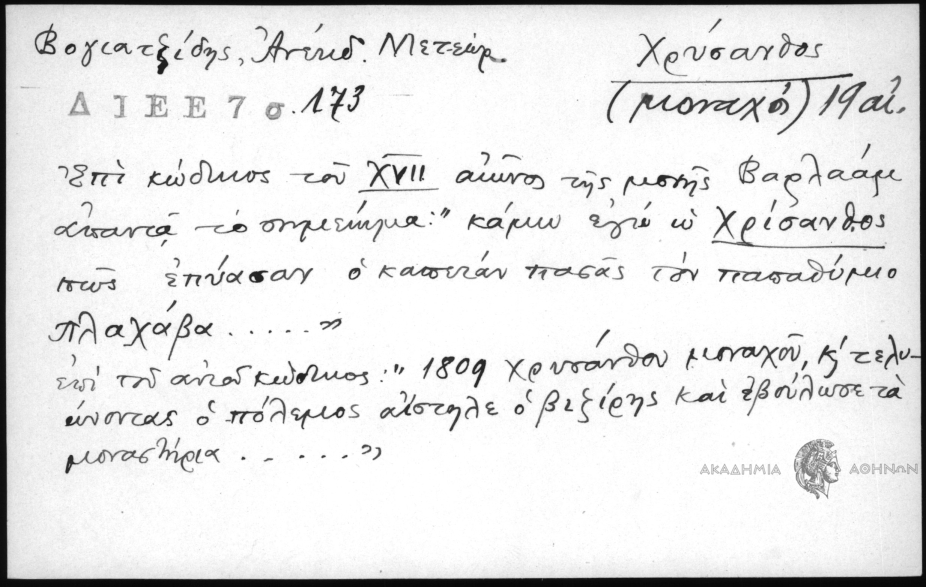 Βογιατζίδης, Ἀνέκδ. Μετεώρ.
Χρύσανθος
(μοναχός) 19 αἰ.
Δ Ι Ε Ε 7 σ. 173
Ἐπὶ κώδικος τοῦ XVII αἰῶνος τῆς μονῆς Βαρλαάμ
ἀπαντᾷ τὸ σημείωμα: " κάμω ἐγώ ὡ Χρίσανθος
πῶς ἐπύασαν ὁ καπετάν πασᾶς τόν παπαθύμιο
Πλαχάβα . . . . . "
ἐπί τοῦ αὐτοῦ κώδικος: " 1809 Χρυσάνθου μοναχοῦ, κ' τελυ-
ώνοντας ὁ πόλεμος αἴστηλε ὁ βεζίρης καὶ ἐβούλωσε τὰ
μοναστήρια . . . . . "
ΑΚΑΔΗΜΙΑ ΑΘΗΝΩΝ